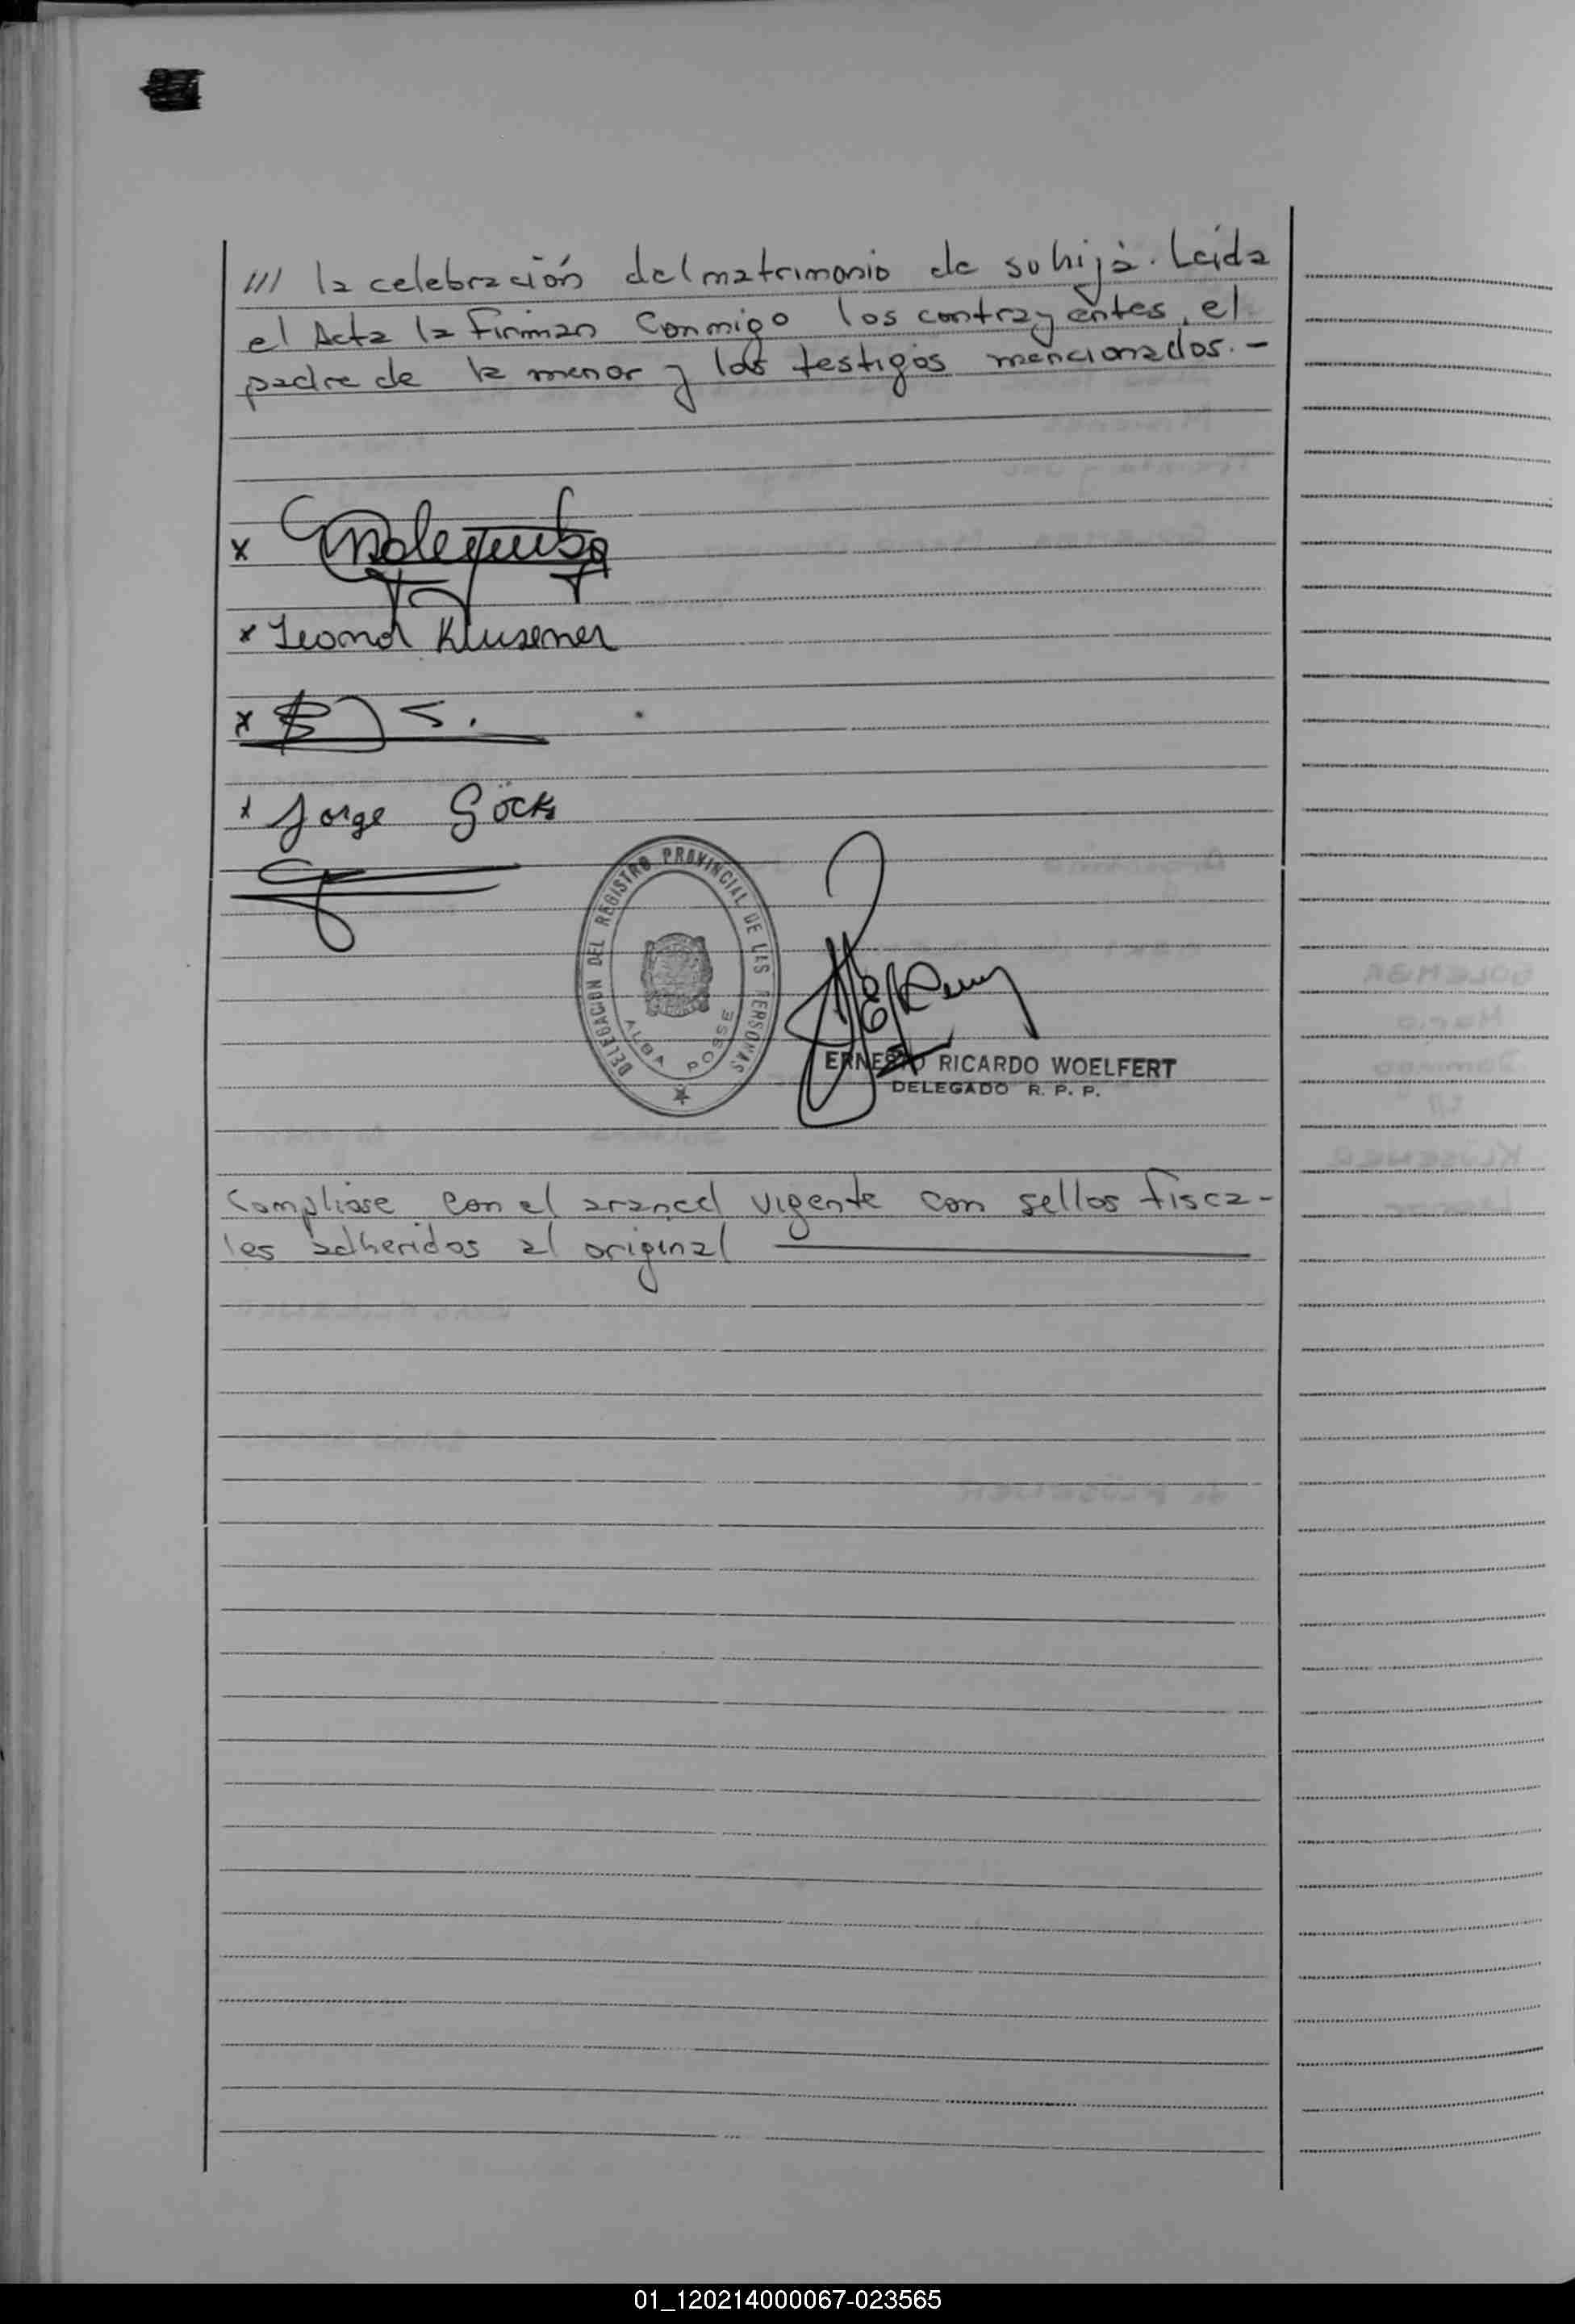 /// la celebración del matrimonio de su hija. Leída
el Acta la firman conmigo los contrayentes, el
padre de la menor y los testigos mencionados.-
x
x Leonor Klusener
x
x Jorge Göcks
DELEGACION DEL REGISTRO PROVINCIAL DE LAS PERSONAS
ALBA POSSE
ERNESTO RICARDO WOELFERT
DELEGADO R. P. P.
Compliose con el arancel vigente con sellos fisca-
les adheridos al original
01_120214000067-023565